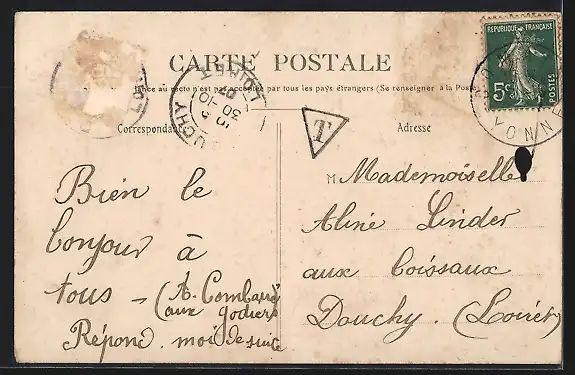 CARTE POSTALE
au recto n'est pas acceptée par tous les pays étrangers (Se renseigner à la Poste
RÉPUBLIQUE FRANÇAISE
5c
POSTES
LOIRET
30-10
T
Correspondance
Adresse
Bien le
bonjour à
tous - (A. Combaud
(aux godiers
Répond. moi de suite
M Mademoiselle
Aline Linder
aux Coissaux
Douchy. (Loiret)